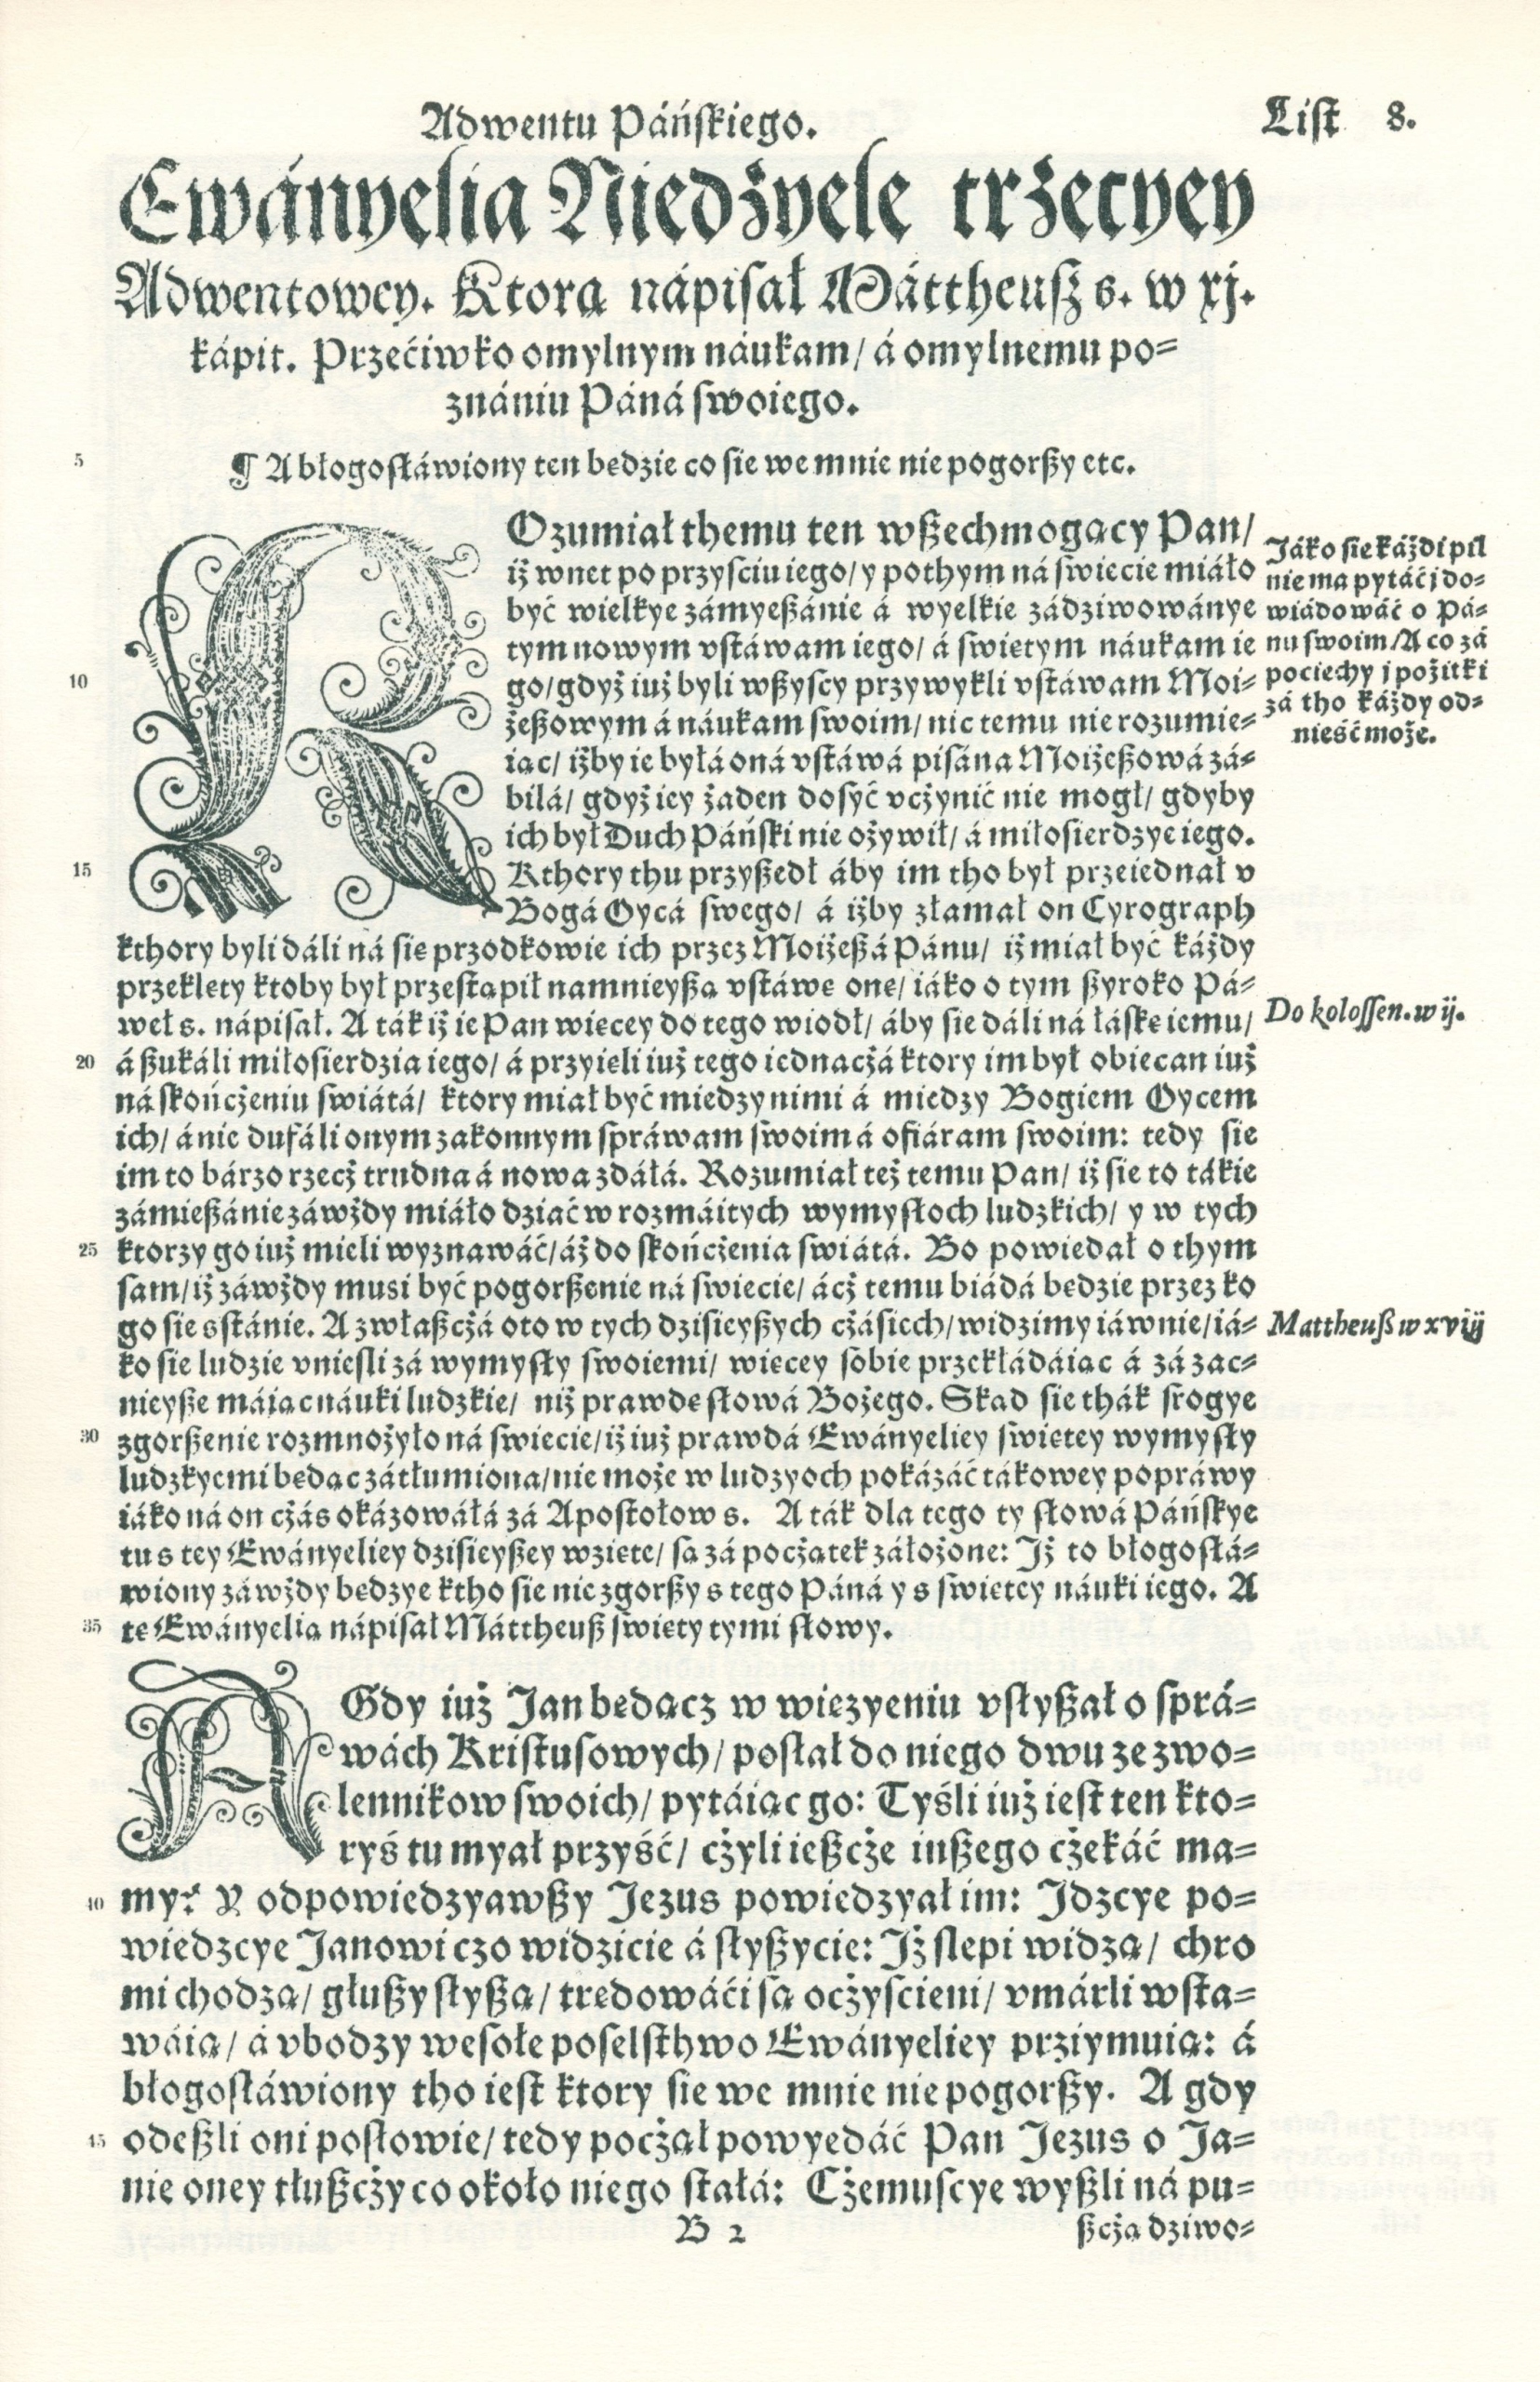 Adwentu Páńſkiego.
Liſt 8.
Ewányelia Niedźyele trżecyey
Adwentowey. Ktorą nápiſał Máttheuſz s. w xj.
kápit. Przećiwko omylnym náukam/ á omylnemu po⸗
znániu Páná ſwoiego.
5
¶ A błogoſłáwiony ten bedzie co ſie we mnie nie pogorßy etc.
ROzumiał themu ten wßechmogący Pan/
iż wnet po przyſciu iego/ y pothym ná ſwiecie miáło
być wielkye zámyeßánie á wyelkie zádziwowánye
tym nowym vſtáwam iego/ á ſwiętym náukam ie
10
go/ gdyż iuż byli wßyſcy przywykli vſtáwam Moi⸗
żeßowym á náukam ſwoim/ nic temu nie rozumie⸗
iąc/ iżby ie byłá oná vſtáwá piſána Moiżeßowá zá⸗
biłá/ gdyż iey żaden doſyć vcżynić nie mogł/ gdyby
ich był Duch Páńſki nie ożywił/ á miłoſierdzye iego.
15
Kthory thu przyßedł áby im tho był przeiednał v
Bogá Oycá ſwego/ á iżby złamał on Cyrograph
kthory byli dáli ná ſie przodkowie ich przez Moiżeßá Pánu/ iż miał być káżdy
przeklęty ktoby był przeſtąpił namnieyßą vſtáwę onę/ iáko o tym ßyroko Pá⸗
weł s. nápiſał. A ták iż ie Pan więcey do tego wiodł/ áby ſie dáli ná łáſkę iemu/
20
á ßukáli miłoſierdzia iego/ á przyięli iuż tego iednacżá ktory im był obiecan iuż
ná ſkońcżeniu ſwiátá/ ktory miał być miedzy nimi á miedzy Bogiem Oycem
ich/ á nie dufáli onym zakonnym ſpráwam ſwoim á ofiáram ſwoim: tedy ſie
im to bárzo rzecż trudna á nowa zdáłá. Rozumiał też temu Pan/ iż ſie to tákie
zámießánie záwżdy miáło dziać w rozmáitych wymyſłoch ludzkich/ y w tych
25
ktorzy go iuż mieli wyznawáć/ áż do ſkońcżenia ſwiátá. Bo powiedał o thym
ſam/ iż záwżdy muſi być pogorßenie ná ſwiecie/ ácż temu biádá będzie przez ko
go ſie sſtánie. A zwłaßcżá oto w tych dziſieyßych cżáſiech/ widzimy iáwnie/ iá⸗
ko ſie ludzie vnieśli zá wymyſły ſwoiemi/ więcey ſobie przekłádáiąc á zá zac⸗
nieyße máiąc náuki ludzkie/ niż prawdę ſłowá Bożego. Skąd ſie thák ſrogye
30
zgorßenie rozmnożyło ná ſwiecie/ iż iuż prawdá Ewányeliey ſwiętey wymyſły
ludzkyemi będąc zátłumiona/ nie może w ludzyoch pokázáć tákowey popráwy
iáko ná on cżás okázowáłá zá Apoſtołow s. A ták dla tego ty ſłowá Páńſkye
tu s tey Ewányeliey dziſieyßey wzięte/ ſą zá pocżątek záłożone: Iż to błogoſłá⸗
wiony záwżdy będzye ktho ſie nie zgorßy s tego Páná y s ſwiętey náuki iego. A
35
tę Ewányelią nápiſał Máttheuß ſwięty tymi ſłowy.
AGdy iuż Jan będącz w więzyeniu vſłyßał o ſprá⸗
wách Kriſtuſowych/ poſłał do niego dwu ze zwo⸗
lennikow ſwoich/ pytáiąc go: Tyśli iuż ieſt ten kto⸗
ryś tu myał przyść/ cżyli ießcże inßego cżekáć ma⸗
40
my? Y odpowiedzyawßy Jezus powiedzyał im: Jdzcye po⸗
wiedzcye Janowi czo widzicie á ſłyßycie: Jż ſlepi widzą/ chro
mi chodzą/ głußy ſłyßą/ trędowáći ſą ocżyſcieni/ vmárli wſta⸗
wáią/ á vbodzy weſołe poſelſthwo Ewányeliey prziymuią: á
błogoſłáwiony tho ieſt ktory ſie we mnie nie pogorßy. A gdy
45
odeßli oni poſłowie/ tedy pocżął powyedáć Pan Jezus o Ja⸗
nie oney tłußcży co około niego ſtałá: Cżemuſcye wyßli ná pu⸗
B 2
ßcżą dziwo⸗
Jáko ſie káżdi pil
nie ma pytáć j do⸗
wiádowáć o Pá⸗
nu ſwoim/ A co zá
pociechy j pożitki
zá tho káżdy od⸗
nieść może.
Do koloſſen. w ij.
Mattheuß w xviij